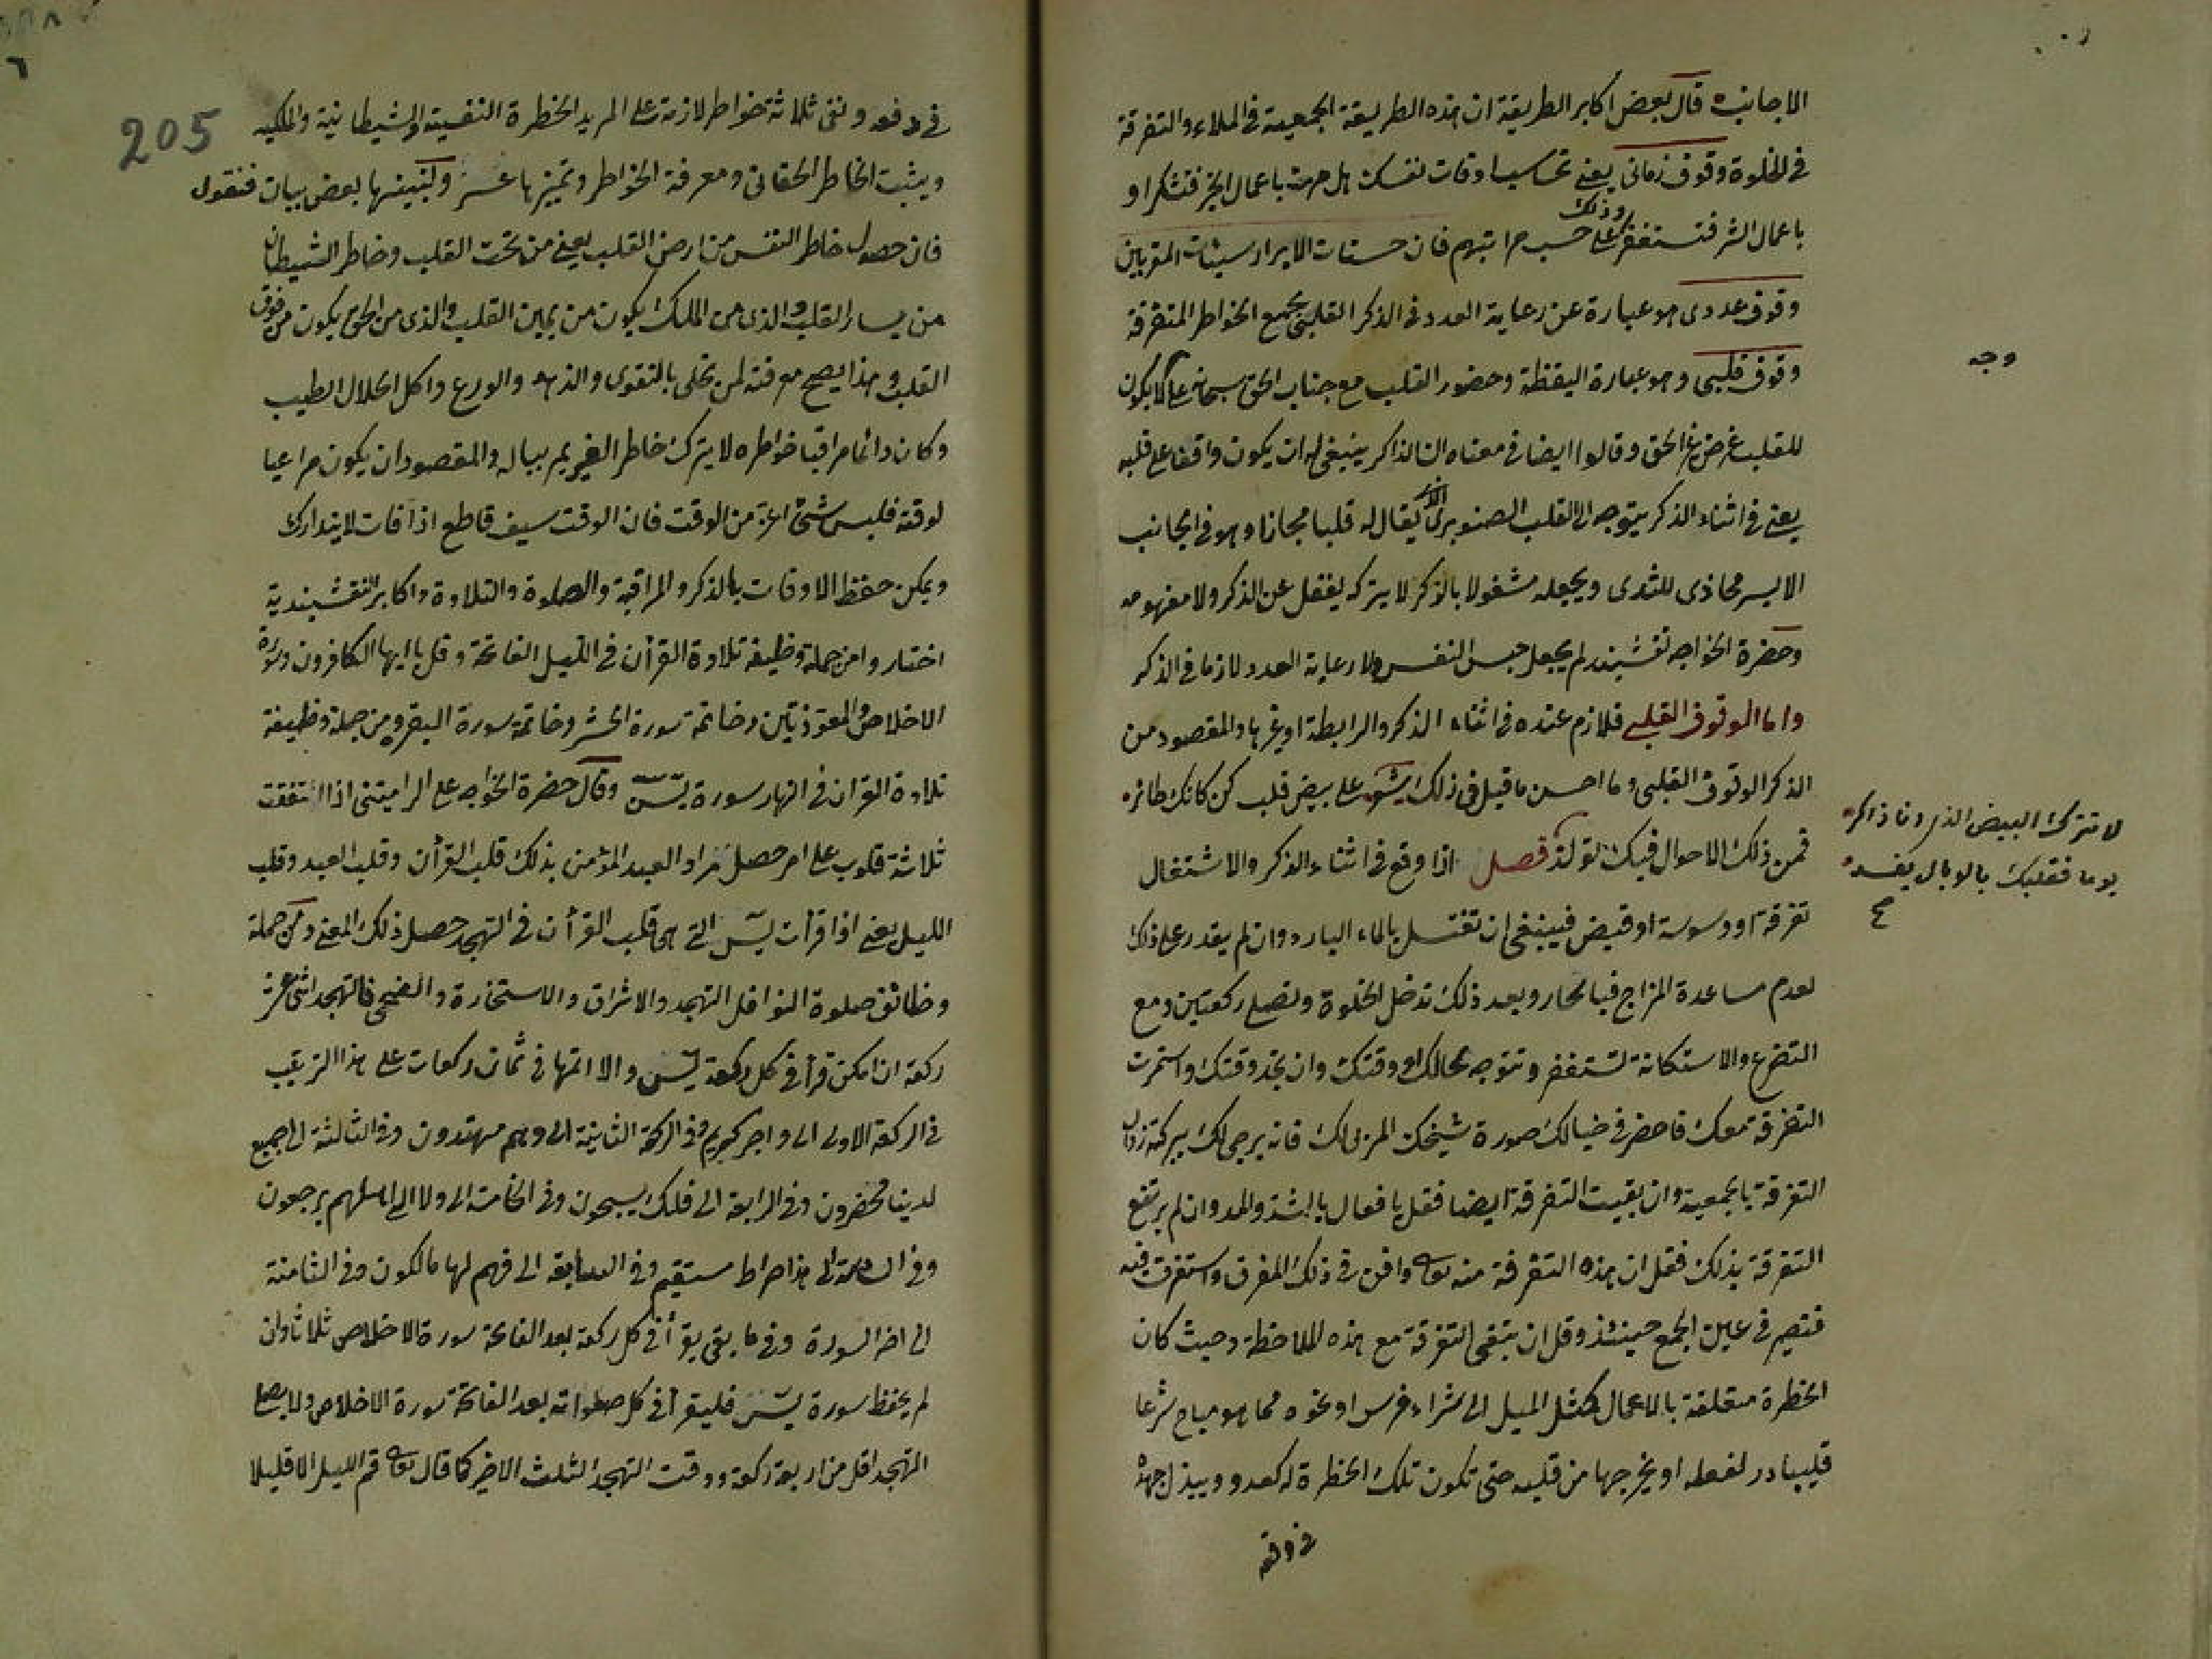 الاجانب قال بعض اكابر الطريقة ان هذه الطريقة الجمعية في الملاء والتفرقة
في الخلوة وقوف زماني يعني تحاسب اوقات نفسك هل مرت باعمال الخير فتشكر او
باعمال الشر فتستغفر وذلك على حسب مراتبهم فان حسنات الابرار سيئات المقربين
وقوف عددى هو عبارة عن رعاية العدد في الذكر القلبي بجمع الخواطر المتفرقة
وقوف قلبي وهو عبارة اليقظة وحضور القلب مع جناب الحق سبحانه على لا يكون
وجه
للقلب غرض غير الحق وقالوا ايضا في معناه ان الذاكر ينبغي له ان يكون واقفا على قلبه
يعني في اثناء الذكر يتوجه الى القلب الصنوبرى الذى يقال له قلبا مجازا وهو في الجانب
الايسر محاذى للثدى ويجعله مشغولا بالذكر لا يتركه يغفل عن الذكر ولا مفهومه
وحضرة الخواجه نقشبند لم يجعل حبس النفس ولا رعاية العدد لازما في الذكر
واما الوقوف القلبي فلازم عنده في اثناء الذكر والرابطة او غيرها والمقصود من
الذكر الوقوف القلبي وما احسن ما قيل في ذلك شعر على بيض قلب كن كانك طائر
لا تترك البيض الذر ونا ذاكر
يوما فقلبك بالوبال يفسد
صح
فمن ذلك الاحوال فيك تولد فصل اذا وقع في اثناء الذكر والاشتغال
تفرقة او وسوسة او قبض فينبغي ان تغتسل بالماء البارد وان لم يقدر على ذلك
لعدم مساعدة المزاج فبالحار وبعد ذلك تدخل الخلوة وتصلي ركعتين ومع
التضرع والاستكانة تستغفر وتتوجه بحالك او وقتك وان تجد وقتك واستمرت
التفرقة معك فاحضر في خيالك صورة شيخك المربى لك فانه يرجى لك ببركته زوال
التفرقة بالجمعية وان بقيت التفرقة ايضا فقل يا فعال بالشد والمد وان لم يرتفع
التفرقة بذلك فقل ان هذه التفرقة منه تعالى وافن في ذلك المفرق واستغرق فيه
فتصير في عين الجمع حينئذ وقل ان تبقى التفرقة مع هذه الملاحظة وحيث كان
الخطرة متعلقة بالاعمال كمثل الميل الى شراء فرس او نحوه مما هو مباح شرعا
فليبادر لفعله او يخرجها من قلبه حتى تكون تلك الخطرة له كعدو ويبذل جهده
في دفعه
205
في دفعه ونفى ثلاثة خواطر لازمة على المريد الخطرة النفسية والشيطانية والملكية
ويثبت الخاطر الحقاني ومعرفة الخواطر وتميزها عسر ولنبينها بعض بيان فنقول
فان حصول خاطر النفس من ارض القلب يعني من تحت القلب وخاطر الشيطان
من يسار القلب والذى من الملك يكون من يمين القلب والذى من الحق يكون من فوق
القلب وهذا يصح معرفته لمن تحلى بالتقوى والزهد والورع واكل الحلال الطيب
وكان دائما مراقبا خواطره لا يترك خاطر الغير يمر بباله والمقصود ان يكون مراعيا
لوقته فليس شئ اعز من الوقت فان الوقت سيف قاطع اذا فات لا يتدارك
ويمكن حفظ الاوقات بالذكر والمراقبة والصلوة والتلاوة واكابر النقشبندية
اختاروا من جملة وظيفة تلاوة القرآن في الليل الفاتحة وقل يا ايها الكافرون وسورة
الاخلاص والمعوذتين وخاتمة سورة الحشر وخاتمة سورة البقرة ومن جملة وظيفة
تلاوة القرآن في النهار سورة يس وقال حضرة الخواجه على الراميتني اذا اتفقت
ثلاثة قلوب على امر حصل مراد العبد المؤمن بذلك قلب القرآن وقلب العبد وقلب
الليل يعني اذا قرأت يس التي هي قلب القرآن في التهجد حصل ذلك المعنى ومن جملة
وظائف صلوة النوافل التهجد والاشراق والاستخارة والضحى فالتهجد اثنى عشر
ركعة ان امكن قرأ في كل ركعة يس والا اتمها في ثمان ركعات على هذا الترتيب
في الركعة الاولى الى واجر كريم وفي الركعة الثانية الى وهم مهتدون وفي الثالثة الى جميع
لدينا محضرون وفي الرابعة الى فلك يسبحون وفي الخامسة الى ولا الى اهلهم يرجعون
وفي السادسة الى هذا صراط مستقيم وفي السابعة الى فهم لها مالكون وفي الثامنة
الى اخر السورة وفي ما بقى يقرأ في كل ركعة بعد الفاتحة سورة الاخلاص ثلاثا وان
لم يحفظ سورة يس فليقرأ في كل صلواته بعد الفاتحة سورة الاخلاص ولا يصلى
التهجد اقل من اربعة ركعة ووقت التهجد الثلث الاخير كما قال تعالى قم الليل الا قليلا